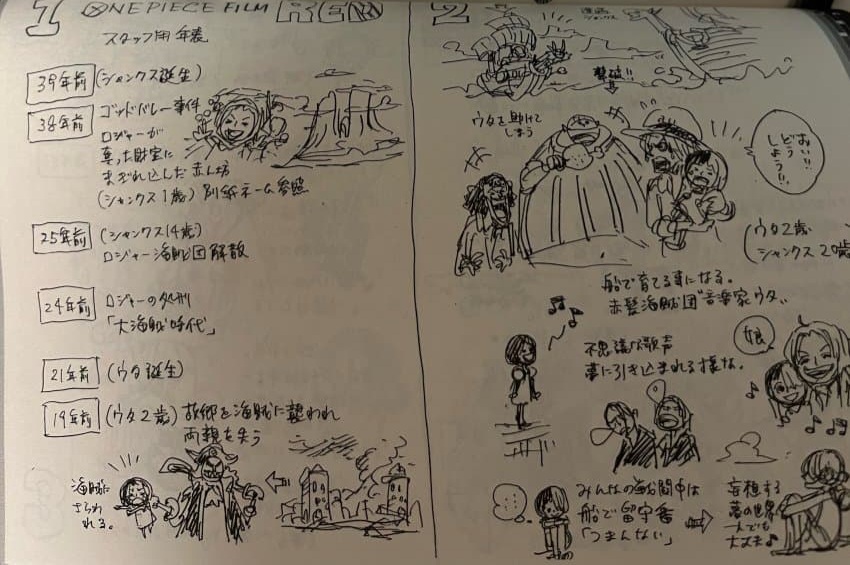 1
ONE PIECE FILM RED
スタッフ用年表
39年前 (シャンクス誕生)
38年前 ゴッドバレー事件
ロジャーが
奪った財宝に
まぎれ込んだ赤ん坊
(シャンクス1歳) 別紙ネーム参照
25年前 (シャンクス14歳)
ロジャー海賊団解散
24年前 ロジャーの処刑
「大海賊時代」
21年前 (ウタ誕生)
19年前 (ウタ2歳) 故郷を海賊に襲われ
両親を失う
海賊に
さらわ
れる。
2
撃破!!
ウタを助けて
しまう
おい!!
どう
しよう!!
(ウタ2歳
シャンクス20歳
船で育てる事になる。
赤髪海賊団"音楽家ウタ"
不思議な歌声
夢に引き込まれる様な。
娘
みんなの
間中は
船で留守番
「つまんない」
妄想する
夢の世界
一人でも
大丈夫♪